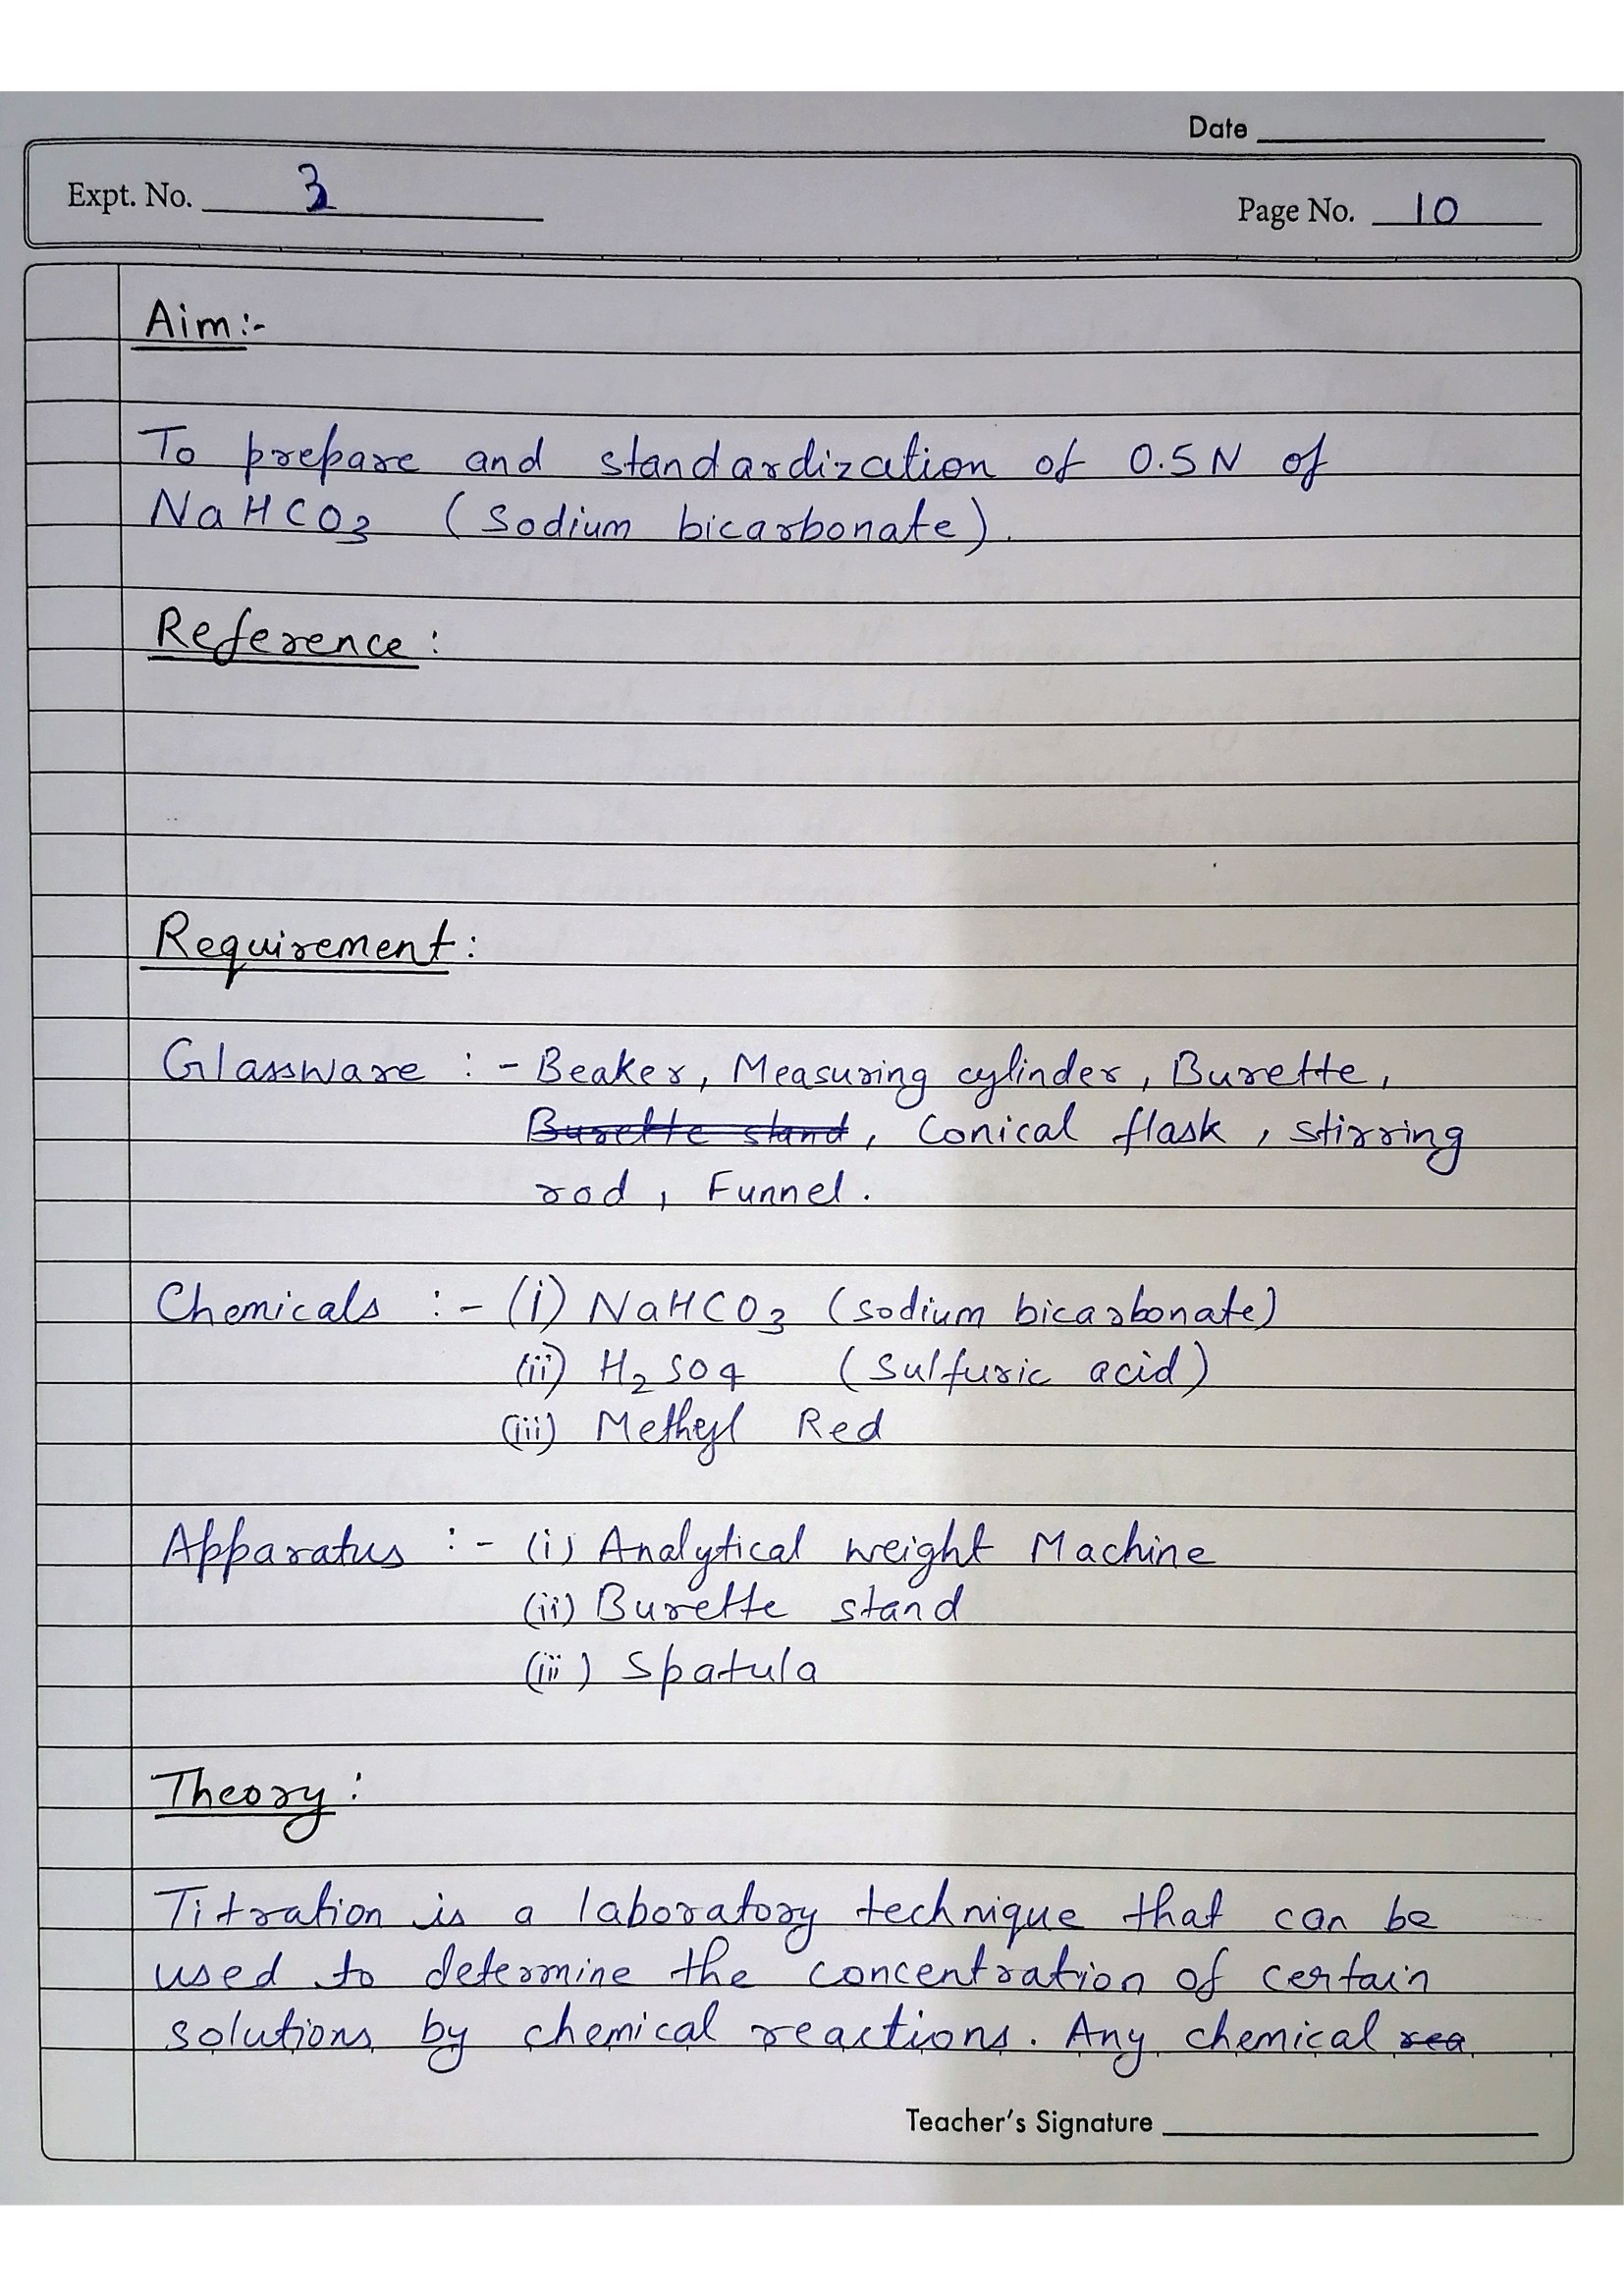 Date
Expt. No. 3
Page No. 10
Aim:-
To prepare and standardization of 0.5N of
NaHCO3 (Sodium bicarbonate).
Reference:
Requirement:
Glassware :- Beaker, Measuring cylinder, Burette,
Burette stand, Conical flask, stirring
rod, Funnel.
Chemicals :- (i) NaHCO3 (sodium bicarbonate)
(ii) H2SO4 (Sulfuric acid)
(iii) Methyl Red
Apparatus :- (i) Analytical weight Machine
(ii) Burette stand
(iii) Spatula
Theory:
Titration is a laboratory technique that can be
used to determine the concentration of certain
solutions by chemical reactions. Any chemical rea
Teacher's Signature